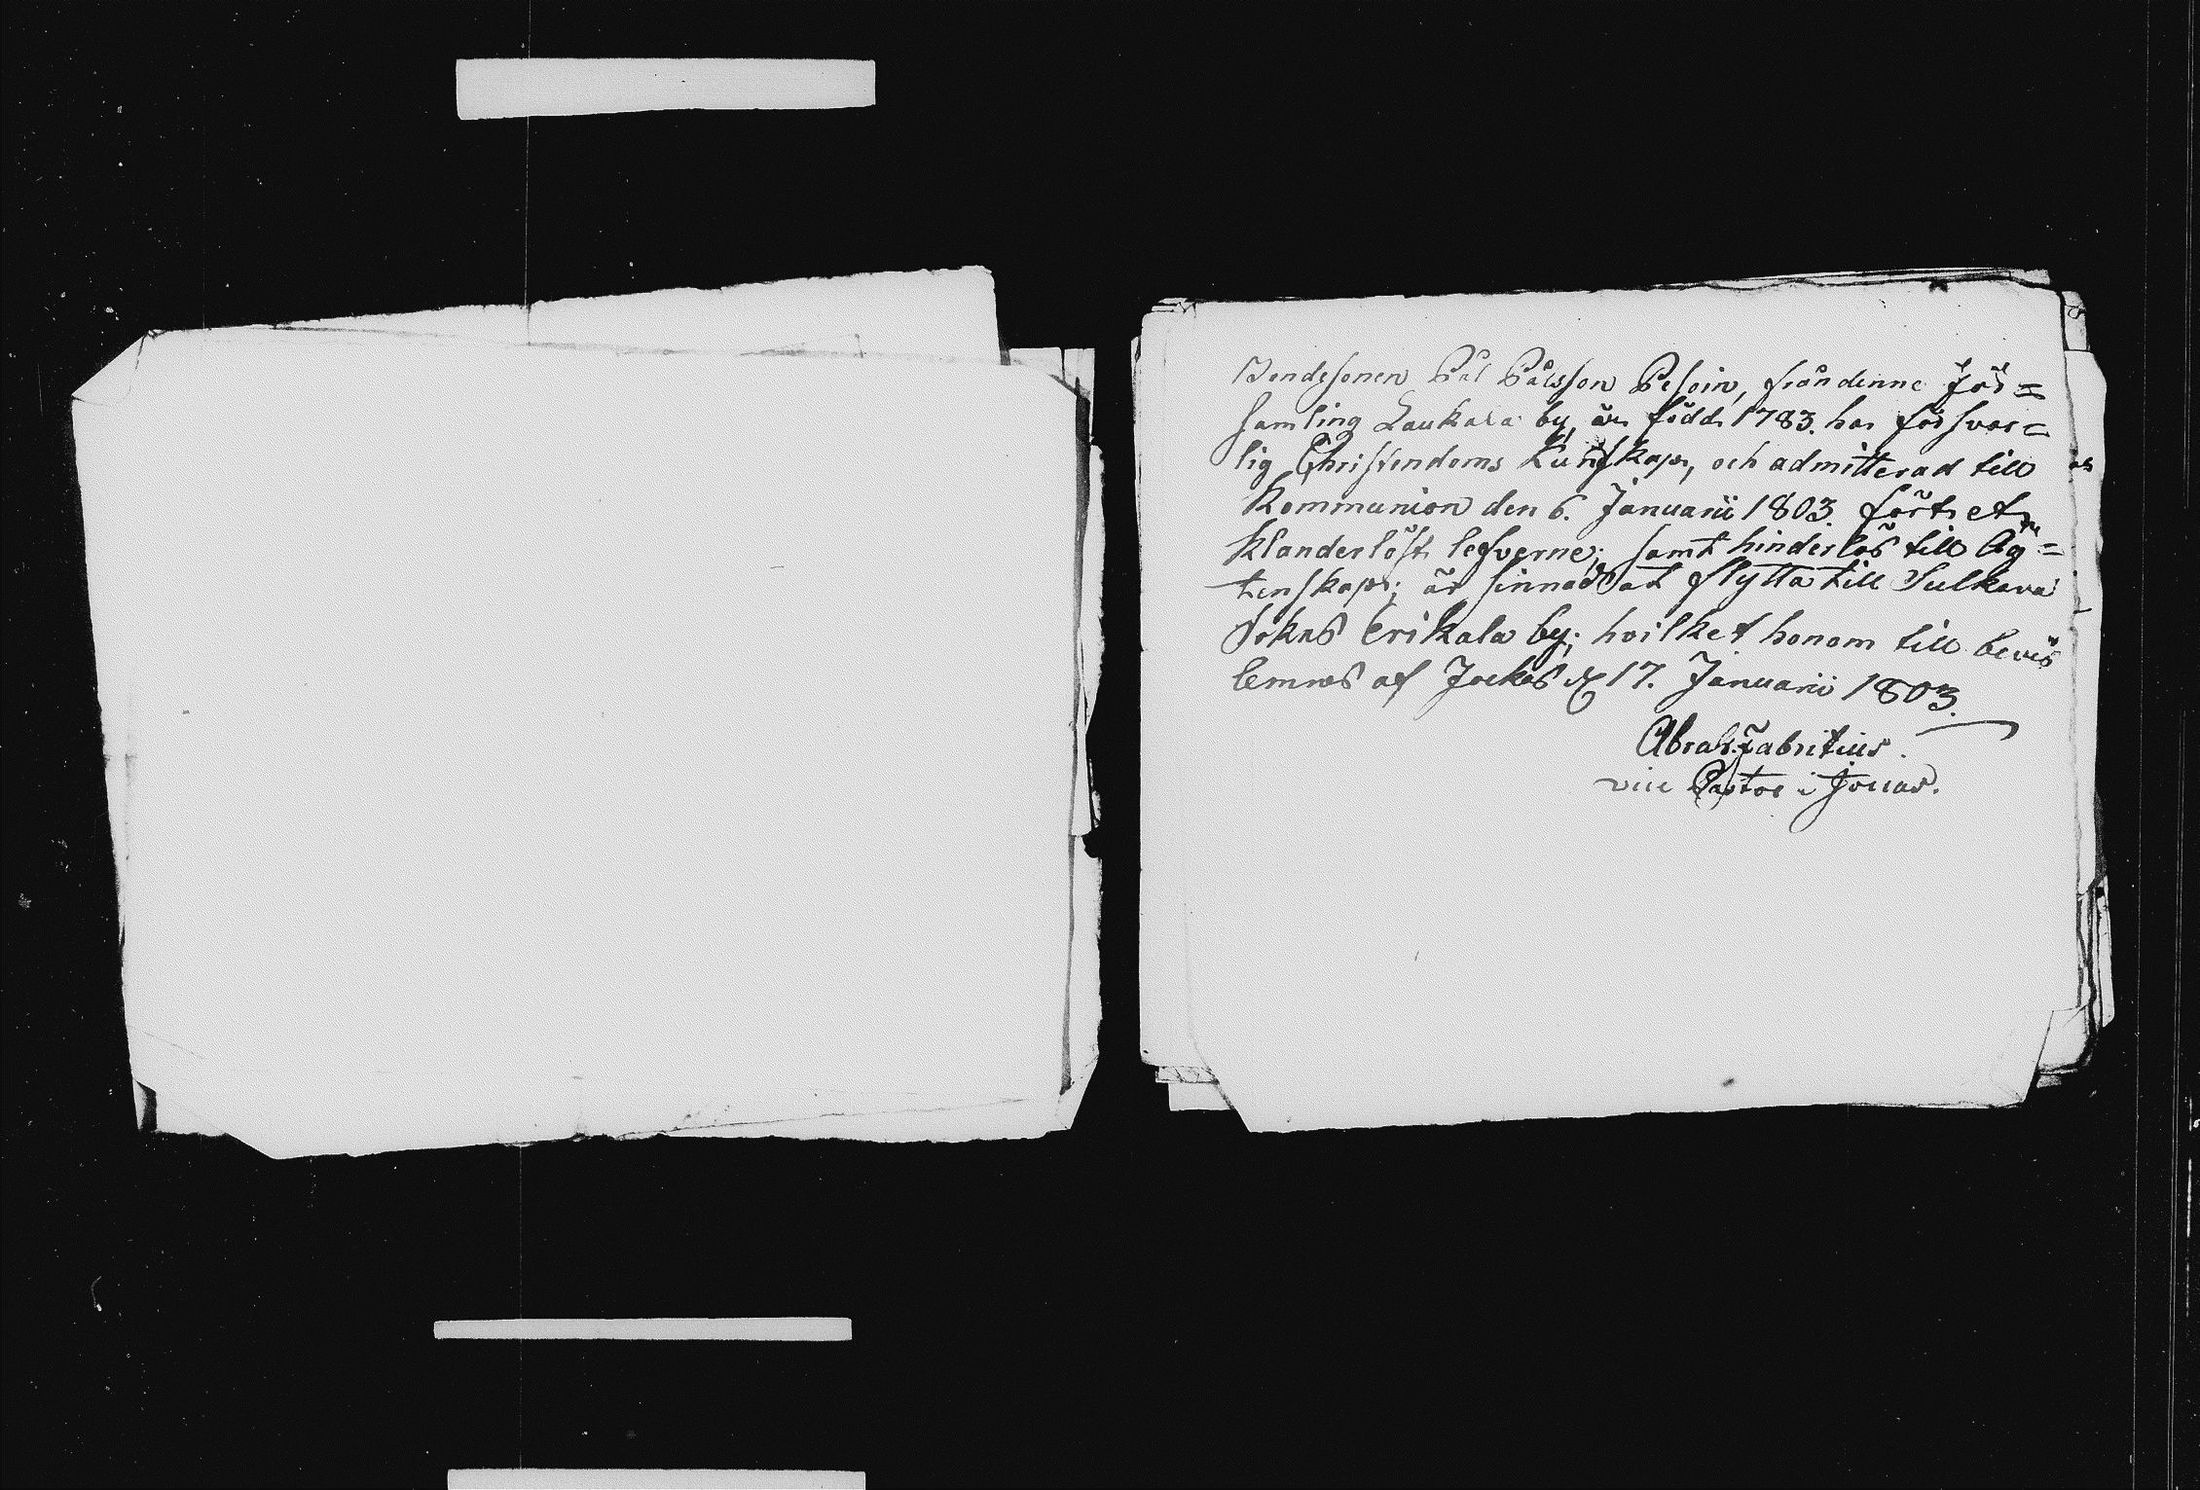 Bondesonen Pål Pålsson Pesoin, från denne för=
samling Laukala by, är född 1783. har försvar=
lig Christendoms kunskap, och admitterad till
Kommunion den 6. Januarii 1803. fört et
klanderlöst lefverne; samt hinderlös till Äg=
tenskap; är sinnad at flytta till Sulkava
Sokns Erikala by; hvilket honom till bevis
lemnas af Jockas d. 17. Januarii 1803.
Abrah. Fabritius.
vice Pastor i Jocкas.